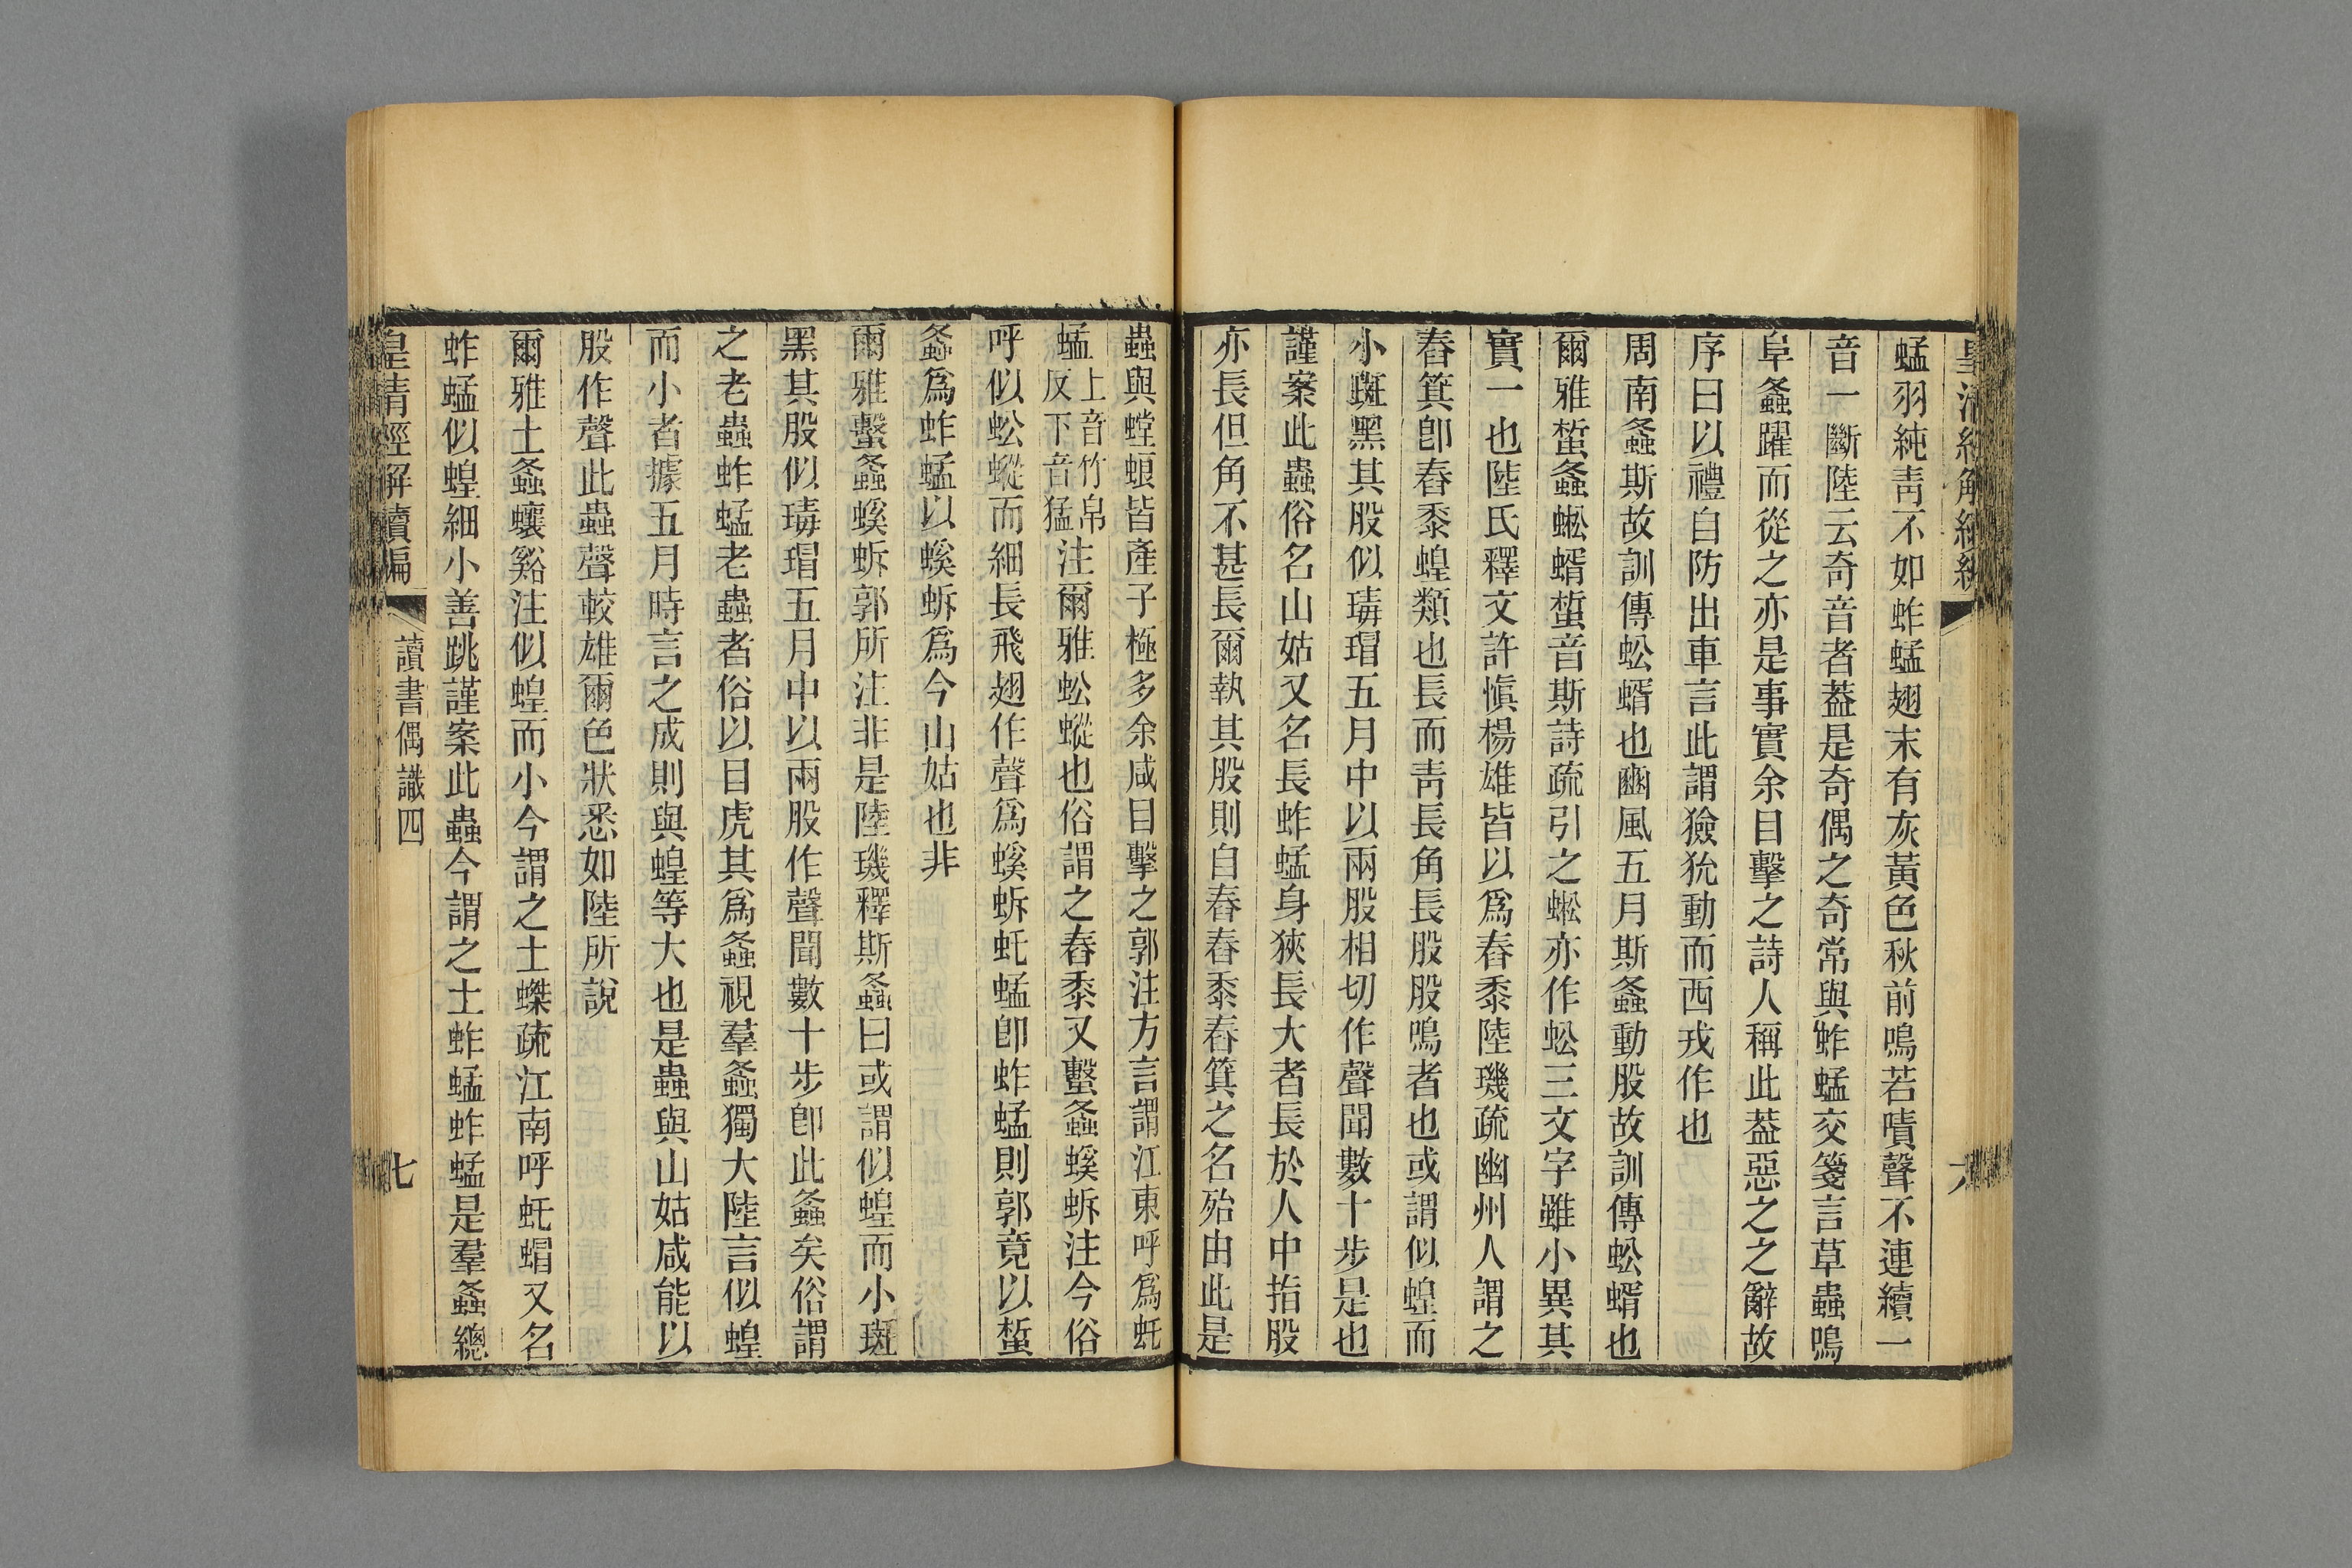 皇清經解續編
六
蜢羽純靑不如蚱蜢翅末有灰黃色秋前鳴若嘖聲不連續一
音一斷陸云奇音者葢是奇偶之奇常與蚱蜢交箋言草蟲鳴
阜螽躍而從之亦是事實余目擊之詩人稱此葢惡之之辭故
序曰以禮自防出車言此謂獫狁動而西戎作也
周南螽斯故訓傳蚣蝑也豳風五月斯螽動股故訓傳蚣蝑也
爾雅蜤螽蜙蝑蜤音斯詩疏引之蜙亦作蚣三文字雖小異其
實一也陸氏釋文許愼楊雄皆以爲舂黍陸璣疏幽州人謂之
舂箕卽舂黍蝗類也長而靑長角長股股鳴者也或謂似蝗而
小斑黑其股似瑇瑁五月中以兩股相切作聲聞數十步是也
謹案此蟲俗名山姑又名長蚱蜢身狹長大者長於人中指股
亦長但角不甚長爾執其股則自舂舂黍舂箕之名殆由此是
蟲與螳蜋皆產子極多余咸目擊之郭注方言謂江東呼爲虴
蜢上音竹帛反下音猛注爾雅蚣蝑也俗謂之舂黍又蟿螽螇蚸注今俗
呼似蚣蝑而細長飛翅作聲爲螇蚸虴蜢卽蚱蜢則郭竟以蜤
螽爲蚱蜢以螇蚸爲今山姑也非
爾雅蟿螽螇蚸郭所注非是陸璣釋斯螽曰或謂似蝗而小斑
黑其股似瑇瑁五月中以兩股作聲聞數十步卽此螽矣俗謂
之老蟲蚱蜢老蟲者俗以目虎其爲螽視羣螽獨大陸言似蝗
而小者據五月時言之成則與蝗等大也是蟲與山姑咸能以
股作聲此蟲聲較雄爾色狀悉如陸所說
爾雅土螽蠰谿注似蝗而小今謂之土蟍疏江南呼虴蜢又名
蚱蜢似蝗細小善跳謹案此蟲今謂之土蚱蜢蚱蜢是羣螽總
皇清經解續編
讀書偶識四
七